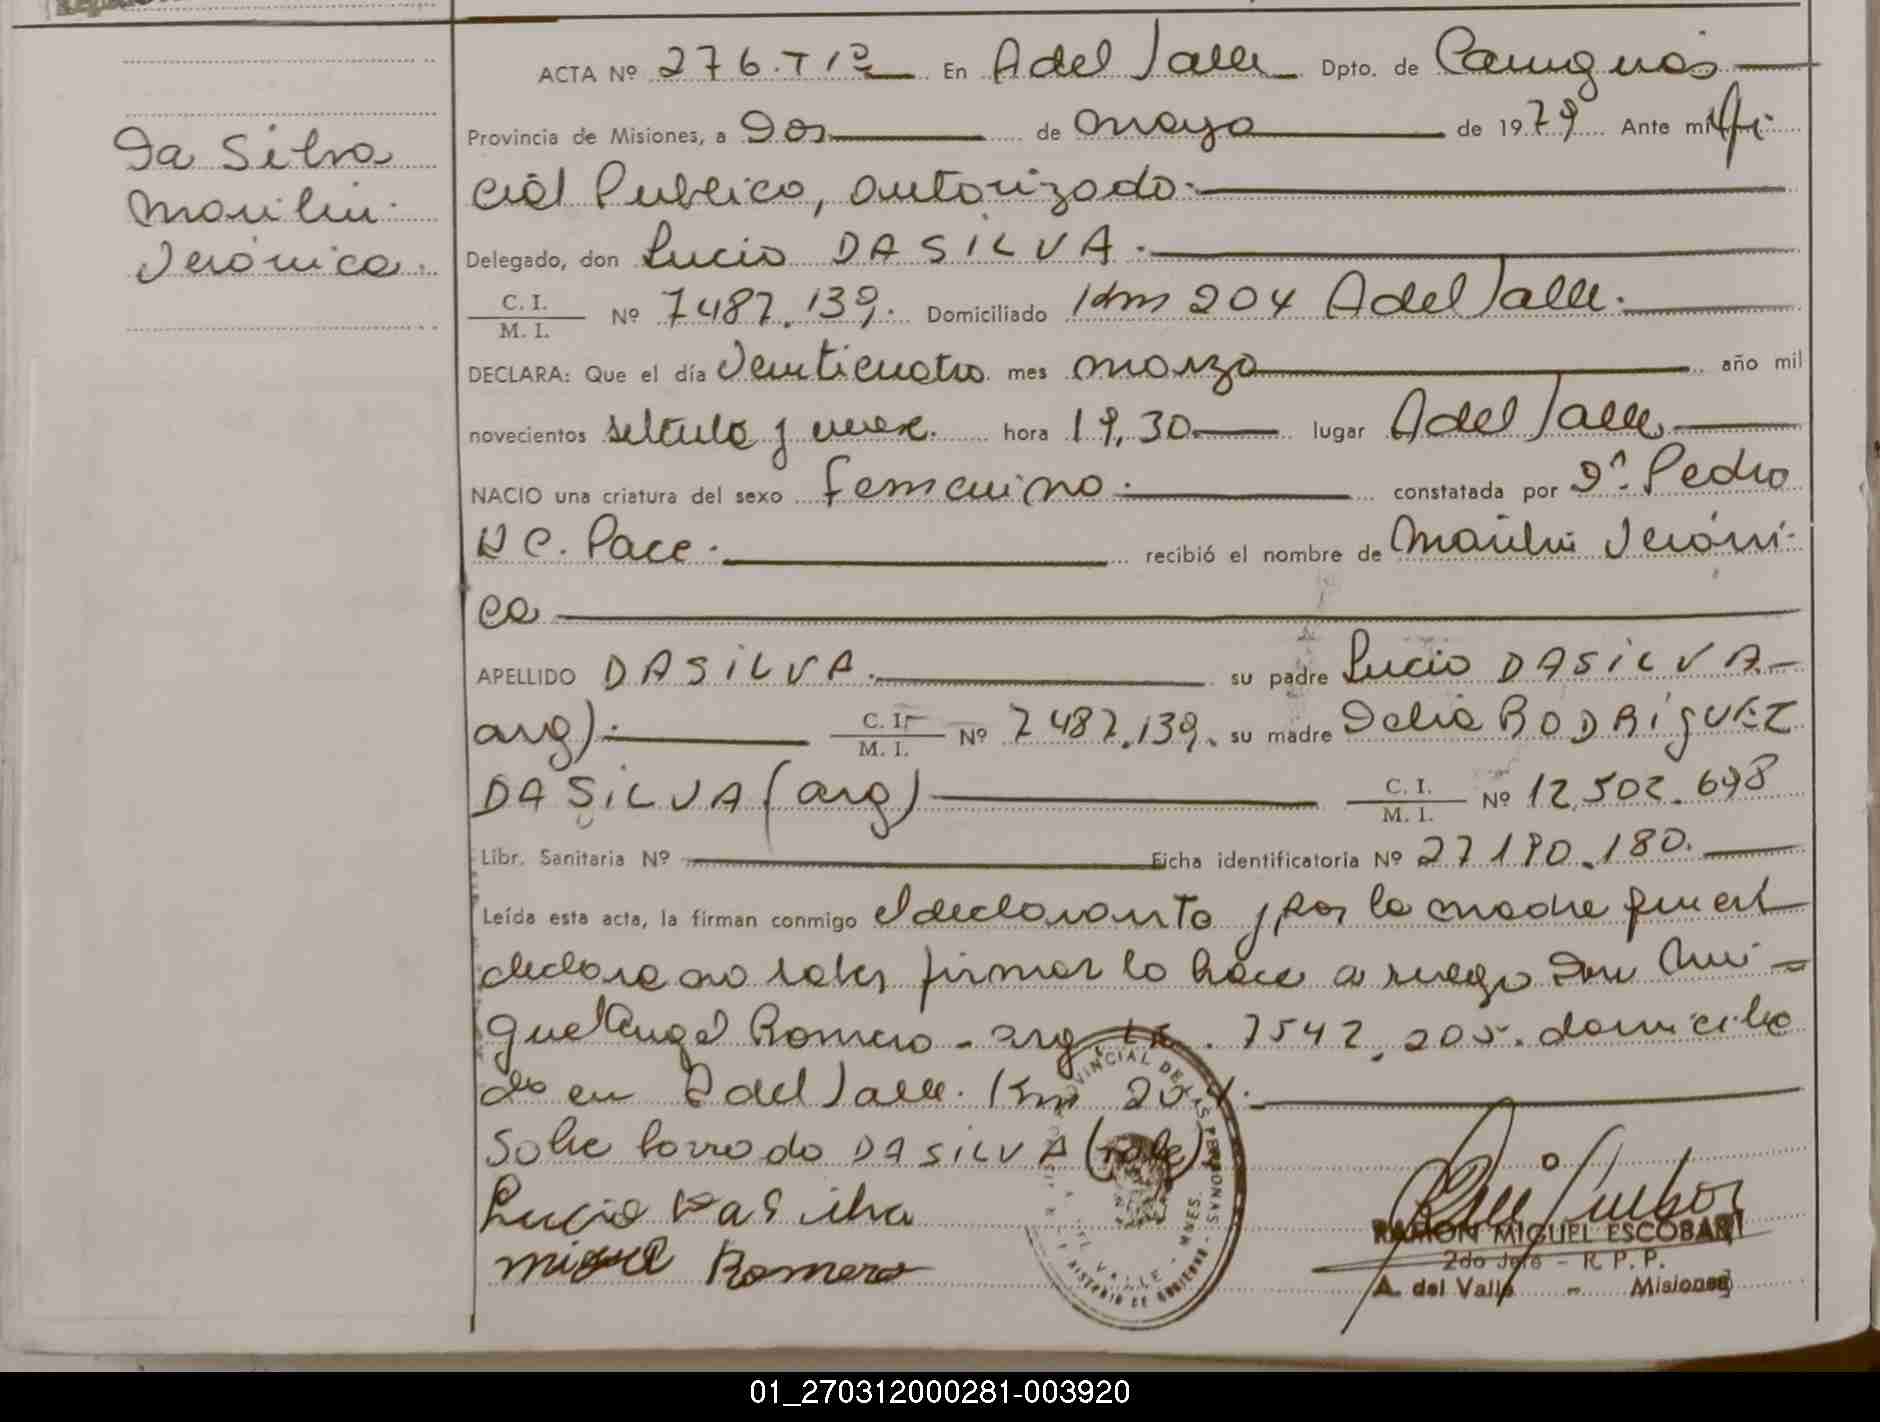 Da Silva
Marilin
Verónica.
ACTA Nº 276. T 1º En A del Valle Dpto. de Cainguás
Provincia de Misiones, a Dos de mayo de 1979 Ante mi Ofi-
cial Publico, autorizado.
Delegado, don Lucio DA SILVA.
C. I.
M. I. Nº 7487.139. Domiciliado Km 204 A del Valle.
DECLARA: Que el día Veinticuatro mes marzo año mil
novecientos setenta y nueve. hora 19,30 lugar A del Valle
NACIO una criatura del sexo femenino. constatada por Dr. Pedro
C. Pace. recibió el nombre de Marilin Veróni-
ca
APELLIDO DA SILVA. su padre Lucio DA SILVA.
arg). C. I. M. I. Nº 7487.139. su madre Delia RODRíGUEZ
DA SILVA (arg) C. I. M. I. Nº 12.502.698
Libr. Sanitaria Nº Ficha identificatoria Nº 27190.180.
Leída esta acta, la firman conmigo el declarante y por la madre quien
declara no saber firmar lo hace a ruego Don Mi-
guel Angel Romero - arg 7542.205. domicilia
do en A del Valle. Km 204.
Sobre borrado DA SILVA (vale)
Lucio Da Silva
Miguel Romero
PROVINCIAL DE LAS PERSONAS
DEL VALLE - MNES.
MINISTERIO DE GOBIERNO
RAMON MIGUEL ESCOBAR
2do Jefe - R. P. P.
A. del Valle - Misiones
01_270312000281-003920